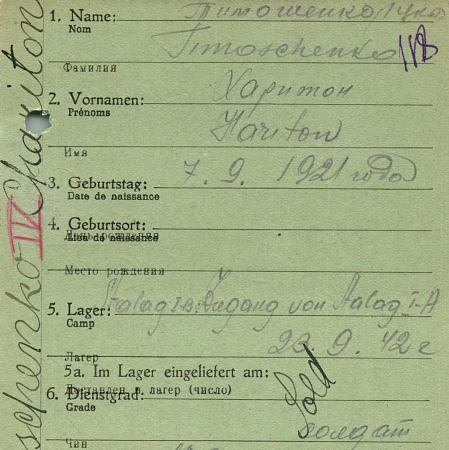 1. Name: Тимошенко
Nom Timoschenko 118
Фамилия
2. Vornamen: Харитон
Prénoms Hariton
Имя
3. Geburtstag: 7. 9. 1921 года
Date de naissance
4. Geburtsort:
День рождения
Lieu de naissance
Место рождения
5. Lager: Stalag I B. Zugang von Stalag I-A
Camp 23. 9. 42 г
Лагерь
5a. Im Lager eingeliefert am:
Доставлен в лагерь (число)
6. Dienstgrad: Sold
Grade солдат
Чин
schenko IV Chariton